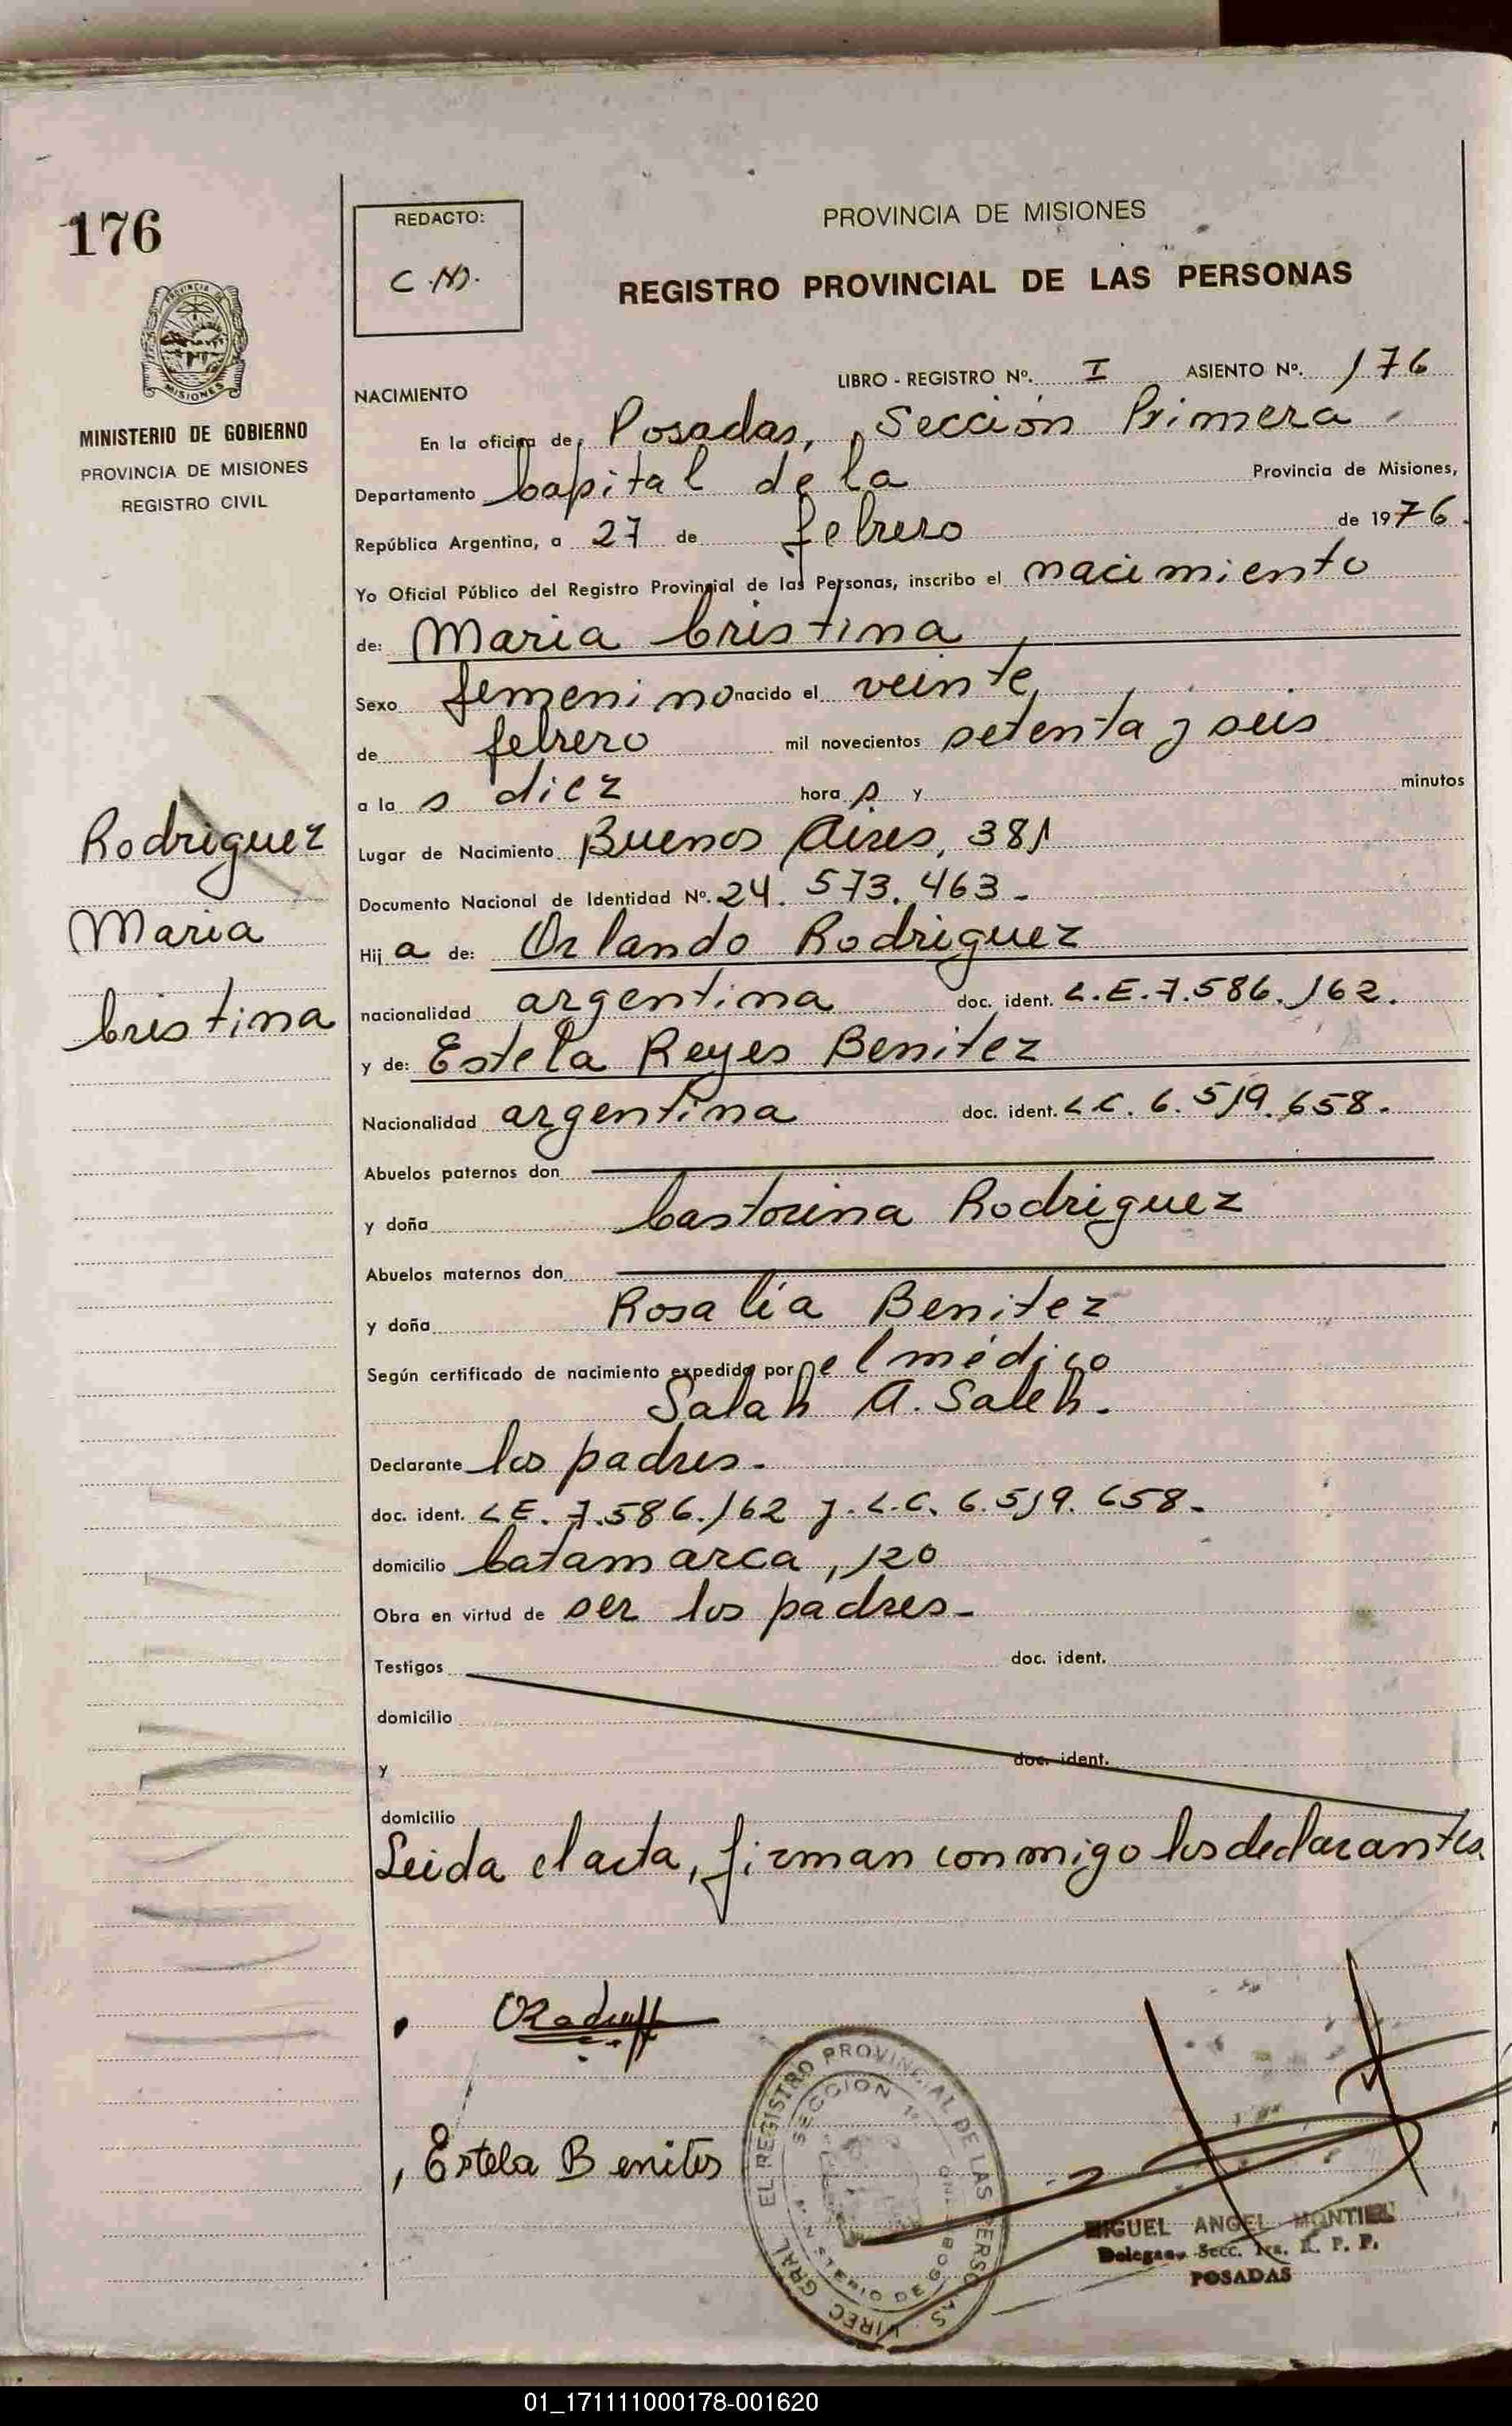 176
REDACTO:
C.N.
PROVINCIA DE MISIONES
REGISTRO PROVINCIAL DE LAS PERSONAS
MINISTERIO DE GOBIERNO
PROVINCIA DE MISIONES
REGISTRO CIVIL
LIBRO - REGISTRO Nº. I ASIENTO Nº. 176
NACIMIENTO
En la oficina de Posadas, Sección Primera
Departamento Capital de la Provincia de Misiones,
República Argentina, a 27 de febrero de 1976.
Yo Oficial Público del Registro Provincial de las Personas, inscribo el nacimiento
de: Maria Cristina
Sexo femenino nacido el veinte
de febrero mil novecientos setenta y seis
a la s diez hora s y minutos
Rodriguez
Maria
Cristina
Lugar de Nacimiento Buenos Aires, 381
Documento Nacional de Identidad Nº. 24.573.463-
Hij a de: Orlando Rodriguez
nacionalidad argentina doc. ident. L.E.7.586.162.
y de: Estela Reyes Benitez
Nacionalidad argentina doc. ident. L.C. 6.519.658.
Abuelos paternos don
y doña Castorina Rodriguez
Abuelos maternos don
y doña Rosalía Benitez
Según certificado de nacimiento expedido por el médico
Salah A. Saleh.
Declarante los padres-
doc. ident. L.E. 7.586.162 y L.C. 6.519.658-
domicilio Catamarca, 120
Obra en virtud de ser los padres-
Testigos doc. ident.
domicilio
y doc. ident.
domicilio
Leida el acta, firman conmigo los declarantes.
Estela Benites
DIREC. GRAL. EL REGISTRO PROVINCIAL DE LAS PERSONAS
SECCION 1º
MINISTERIO DE GOBIERNO
MIGUEL ANGEL MONTIEL
Delegado Secc. 1ra. R. P. P.
POSADAS
01_171111000178-001620